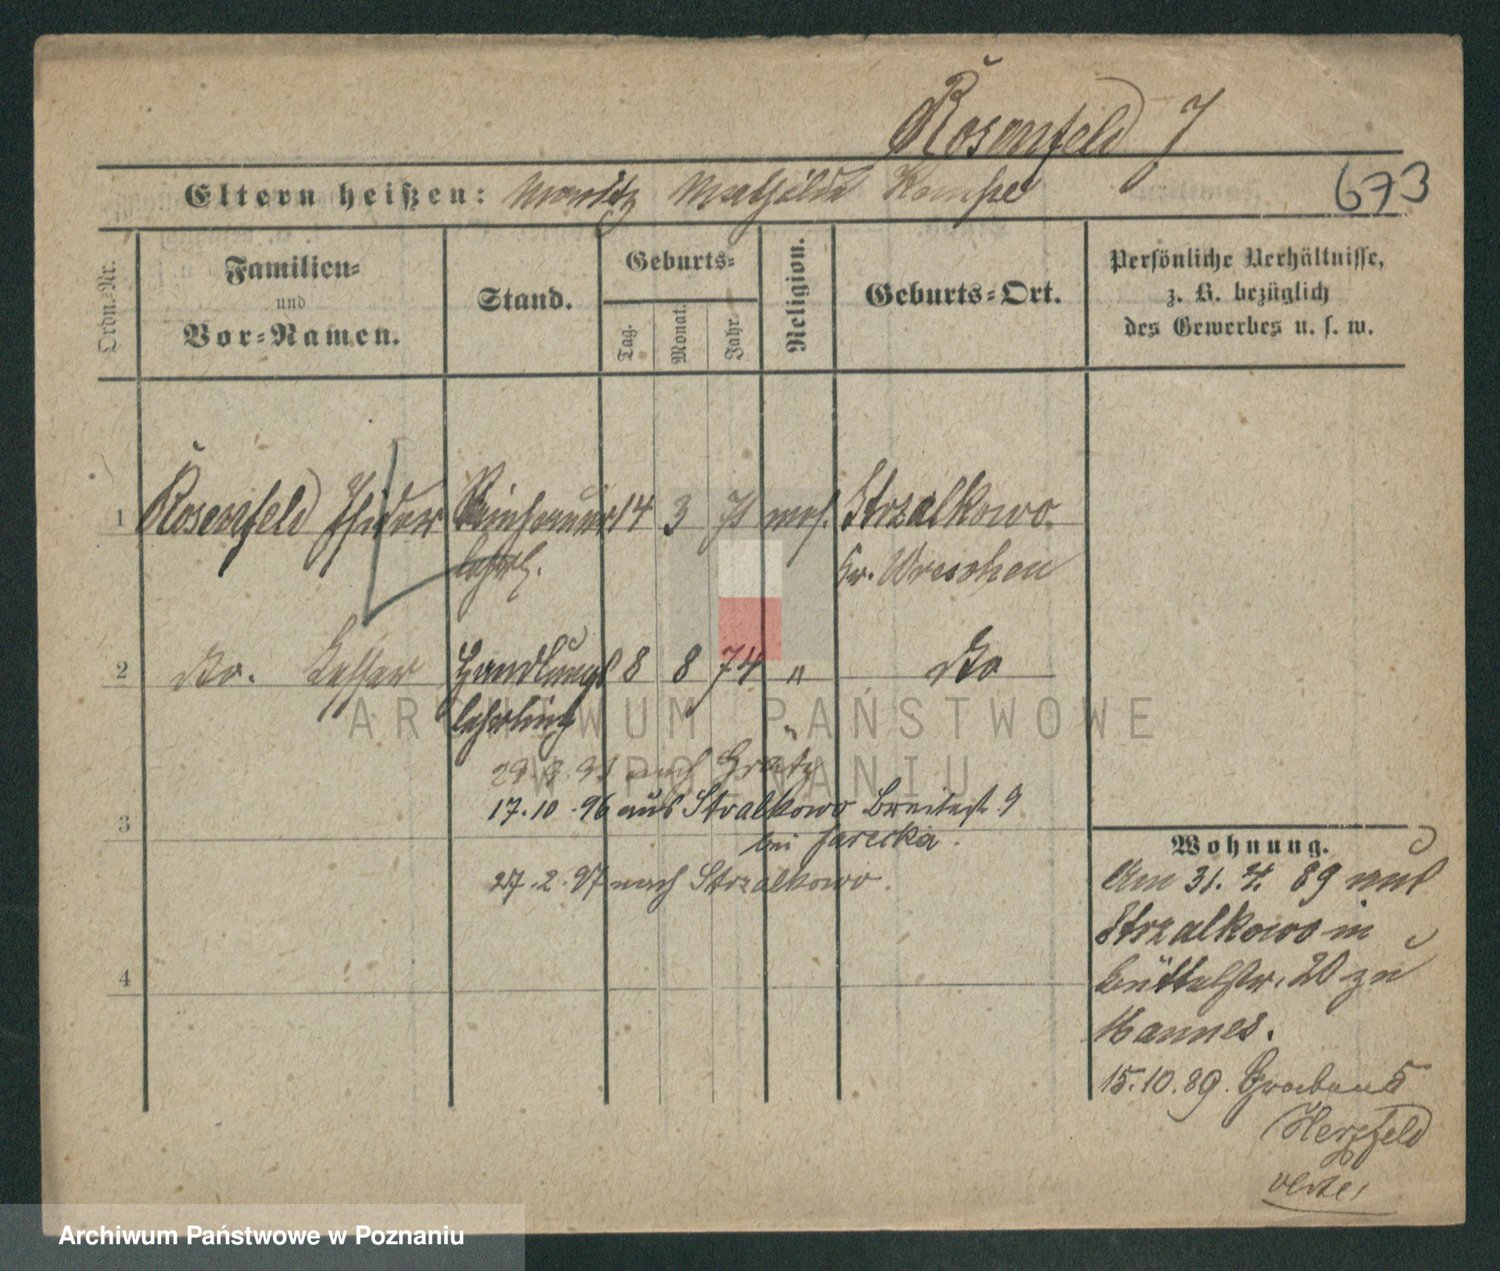 Rosenfeld J
673
Eltern heißen: Moritz Mathilde Kempe
Ordn.-Nr.
Familien-
und
Vor-Namen.
Stand.
Geburts-
Tag.
Monat.
Jahr.
Religion.
Geburts-Ort.
Persönliche Verhältnisse,
z. B. bezüglich
des Gewerbes u. s. w.
1 Rosenfeld Isidor 14 3 mos. Strzalkowo
lehrl. Kr. Wreschen
2 do. Handlungs 8 8 74 " do
lehrling "
nach Grätz
17.10.96 aus Stralkowo Breitestr. 9
3
bei Jarecka.
27.2.97 nach Strzalkowo.
4
Wohnung.
Am 31. 4. 89 aus
Strzalkowo in
Büttelstr. 20 zu
Hannes.
15.10.89. Graben 5
Herzfeld
ARCHIWUM PAŃSTWOWE
W POZNANIU
Archiwum Państwowe w Poznaniu